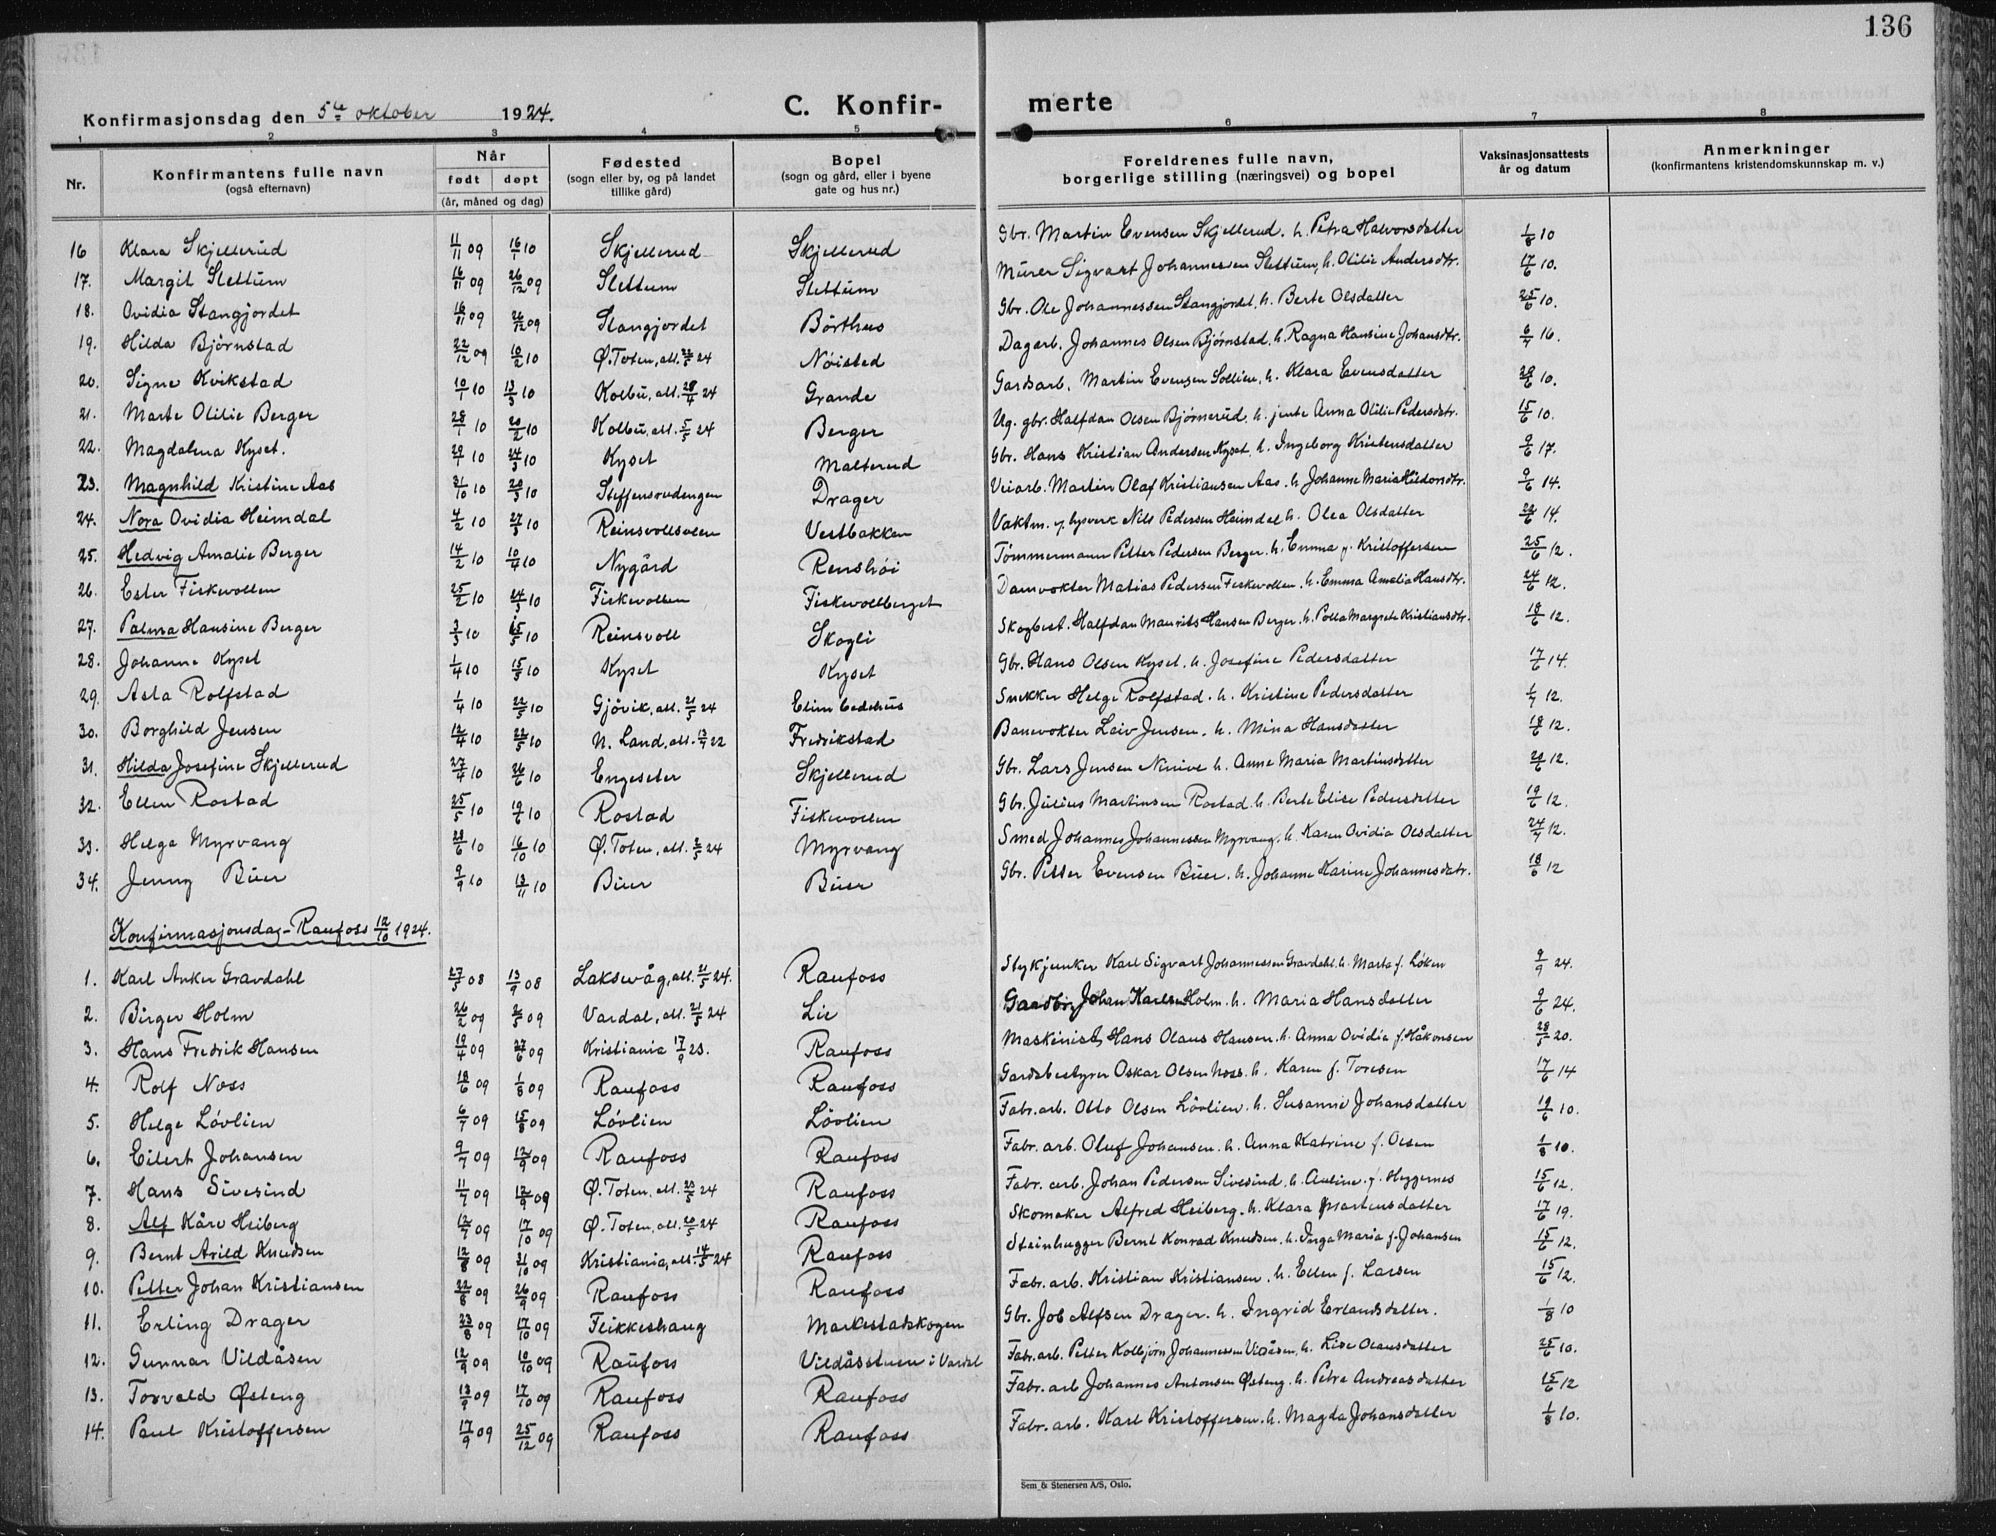 136
Konfirmasjonsdag den 5te oktober 1924.
C. Konfirmerte
1 2 3 4 5 6 7 8
Nr. | Konfirmantens fulle navn (også efternavn) | Når født døpt (år, måned og dag) | Fødested (sogn eller by, og på landet tillike gård) | Bopel (sogn og gård, eller i byene gate og hus nr.) | Foreldrenes fulle navn, borgerlige stilling (næringsvei) og bopel | Vaksinasjonsattests år og datum | Anmerkninger (konfirmantens kristendomskunnskap m. v.)
16 Klara Skjellerud 11/11 09 16/1 10 Skjellerud Skjellerud Gbr. Martin Evensen Skjellerud. h. Petra Halvorsdatter 1/8 10
17. Margit Slettum 16/11 09 26/12 09 Slettum Slettum Murer Sigvart Johannessen Slettum, h. Otilie Andersdtr. 17/6 10.
18. Ovidia Stangjordet 16/11 09 26/12 09 Stangjordet Börthus Gbr. Ole Johannessen Stangjordet, h. Berte Olsdatter 25/6 10.
19. Hilda Bjørnstad 22/12 09 10/2 10 Ø. Toten, att. 22/5 24 Nøisted Dagarb. Johannes Olsen Bjørnstad, h. Ragna Hansine Johansdtr. 16.
20. Signe Kvikstad 10/1 10 13/3 10 Kolbu, att. 28/4 24 Grande Gardsarb. Martin Evensen Sollien, h. Klara Evensdatter 28/6 10.
21. Marte Otilie Berger 28/1 10 20/2 10 Kolbu, att. 5/5 24 Berger Ug. gbr. Halfdan Olsen Bjørnerud, h. jente Anna Otilie Pedersdtr. 15/6 10.
22. Magdalena Kyset. 29/1 10 24/3 10 Kyset Malterud Gbr. Hans Kristian Andersen Kyset, h. Ingeborg Kristensdatter 9/6 17.
23. Magnhild Kristine Aas 31/10 10 20/3 10 Steffensrudengen Drager Veiarb. Martin Olaf Kristiansen Aas. h Johanne Maria 9/6 14.
24. Nora Ovidia Heimdal 4/2 10 27/3 10 Reinsvollsveen Vestbakken Vaktm. v. lysverk Nils Pedersen Heimdal h. Olea Olsdatter 22/6 14.
25. Hedvig Amalie Berger 14/2 10 10/4 10 Nygård Renshöi Tømmermann Petter Pedersen Berger. h. Emma f. Kristoffersen 25/6 12.
26. Ester Fiskevollen 25/2 10 24/3 10 Fiskevollen Fiskevollberget Damvokter Matias Pedersen Fiskevollen. h. Emma Amalia Hansdtr. 24/6 12.
27. Palma Hansine Berger 3/3 10 15/5 10 Reinsvoll Skogli Skogbest. Halfdan Maurits Hansen Berger. h. Margrete Kristiansdtr. 18/6 12.
28. Johanne Kyset 1/4 10 15/5 10 Kyset Kyset Gbr. Hans Olsen Kyset. h. Josefine Pedersdatter 17/6 14.
29. Asta Rolfstad 1/4 10 22/5 10 Gjövik, att. 21/5 24 Elim bedehus Snekker Helge Rolfstad. h. Kristine Pedersdatter 1/7 12.
30. Borghild Jensen 12/4 10 22/5 10 N. Land, att. 13/7 22 Fredrikstad Banevokter Leiv Jensen. h. Mina Hansdatter 18/6 12.
31. Hilda Josefine Skjellerud 27/4 10 26/6 10 Engeseter Skjellerud Gbr. Lars Jensen Ninive h. Anne Maria Martinsdatter 28/6 12.
32. Ellen Rostad 25/5 10 10 Rostad Fiskevollen Gbr. Julius Martinsen Rostad. h. Berte Elise Pedersdatter 19/6 12.
33. Helga Myrvang 28/6 10 16/10 10 Ø. Toten, att. 24 Myrvang Smed Johannes Johannessen Myrvang. h. Karen Ovidia Olsdatter 24/7 12.
34. Jenny Buer 9/9 10 13/11 10 Buer Buer Gbr. Petter Evensen Buer. h. Johanne Karine Johannesdatr. 18/6 12
Konfirmasjonsdag - Raufoss 12/10 1924.
1. Karl Anker Gravdahl 27/5 08 13/9 08 Laksevåg, att. 21/5 24. Raufoss Stykjunker Karl Sigvart Johannessen Gravdahl. h. Marta f. Løken 9/9 24.
2. Birger Holm 26/2 09 2/5 09 Vardal, att. 21/5 24 Lie Gaardbr. Johan Karlsen Holm. h. Maria Hansdatter 9/6 24.
3. Hans Fredrik Hansen 19/4 09 27/6 09 Kristiania 17/9 23. Raufoss Maskinist, Hans Olaus Hansen. h. Anna Ovidia f. Håkonsen 28/5 20.
4. Rolf Noss 18/6 09 1/8 09 Raufoss Raufoss Gardsbestyrer Oskar Olsen Noss. h. Karen f. Toresen 17/6 14
5. Helge Lövlien 6/7 09 15/8 09 Lövlien Lövlien Fabr. arb. Otto Olsen Lövlien. h. Susanne Johansdatter 19/6 10.
6. Eilert Johansen 9/7 09 12/9 09 Raufoss Raufoss Fabr. arb. Oluf Johansen. h. Anna Katrine f. Olsen 1/8 10.
7. Hans Sivesind 11/7 09 12/9 09 Ø. Toten, att. 23/5 24 Raufoss Fabr. arb. Johan Pedersen Sivesind. h. Auline. f. Heggernes 15/6 12.
8. Alf Kåre Heiberg 12/7 09 17/10 09 Ø. Toten, att. 20/5 24 Raufoss Skomaker Alfred Heiberg. h. Klara Martinsdatter 17/6 19.
9. Bernt Arild Knudsen 12/8 09 31/10 09 Kristiania, att. 14/5 24 Raufoss Steinhugger Bernt Konrad Knudsen. h. Inga Maria f. Johansen 15/6 12.
10. Petter Johan Kristiansen 22/8 09 26/9 09 Raufoss Raufoss Fabr. arb. Kristian Kristiansen. h. Ellen f. Larsen 15/6 12.
11. Erling Drager 23/8 09 17/10 09 Flikkeshaug Markestadskogen Gbr. Job Alfsen Drager. h. Ingrid Erlandsdatter. 1/8 10
12. Gunnar Vildåsen 12/9 09 10/10 09 Raufoss Vildåsstuen i Vardal Fabr. arb. Petter Kolbjørn Johannessen Vildåsen, h. Lise Olausdatter 25/6 10.
13. Torvald Østeng 13/9 09 17/10 09 Raufoss Raufoss Fabr. arb Johannes Antonsen Østeng. h. Petra Andreasdatter 15/6 12
14. Paul Kristoffersen 17/9 09 25/12 09 Raufoss Raufoss Fabr. arb. Karl Kristoffersen. h. Magda Johansdatter 1/8 10.
Sem & Stenersen A/S, Oslo.